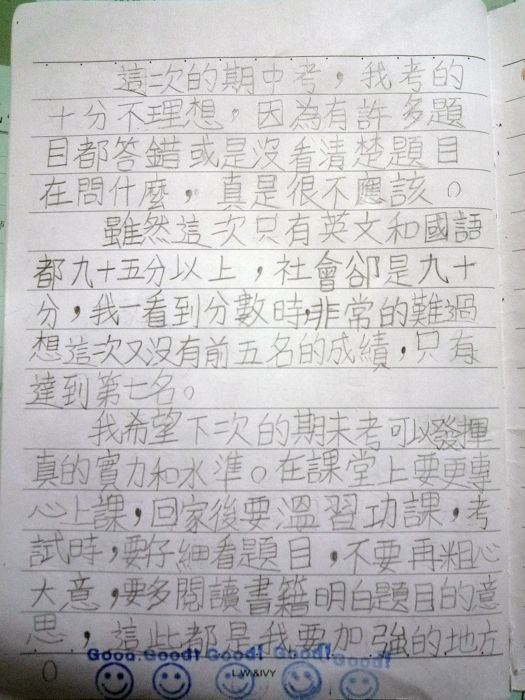 這次的期中考，我考的
十分不理想。因為有許多題
目都答錯或是沒看清楚題目
在問什麼，真是很不應該。
雖然這次只有英文和國語
都九十五分以上，社會卻是九十
分，我一看到分數時，非常的難過
想這次又沒有前五名的成績，只有
達到第七名。
我希望下次的期末考可以發揮
真的實力和水準。在課堂上要更專
心上課，回家後要溫習功課，考
試時，要仔細看題目，不要再粗心
大意，要多閱讀書籍明白題目的意
思，這些都是我要加強的地方
。
Good! Good! Good! Good! Good!
L.W &IVY